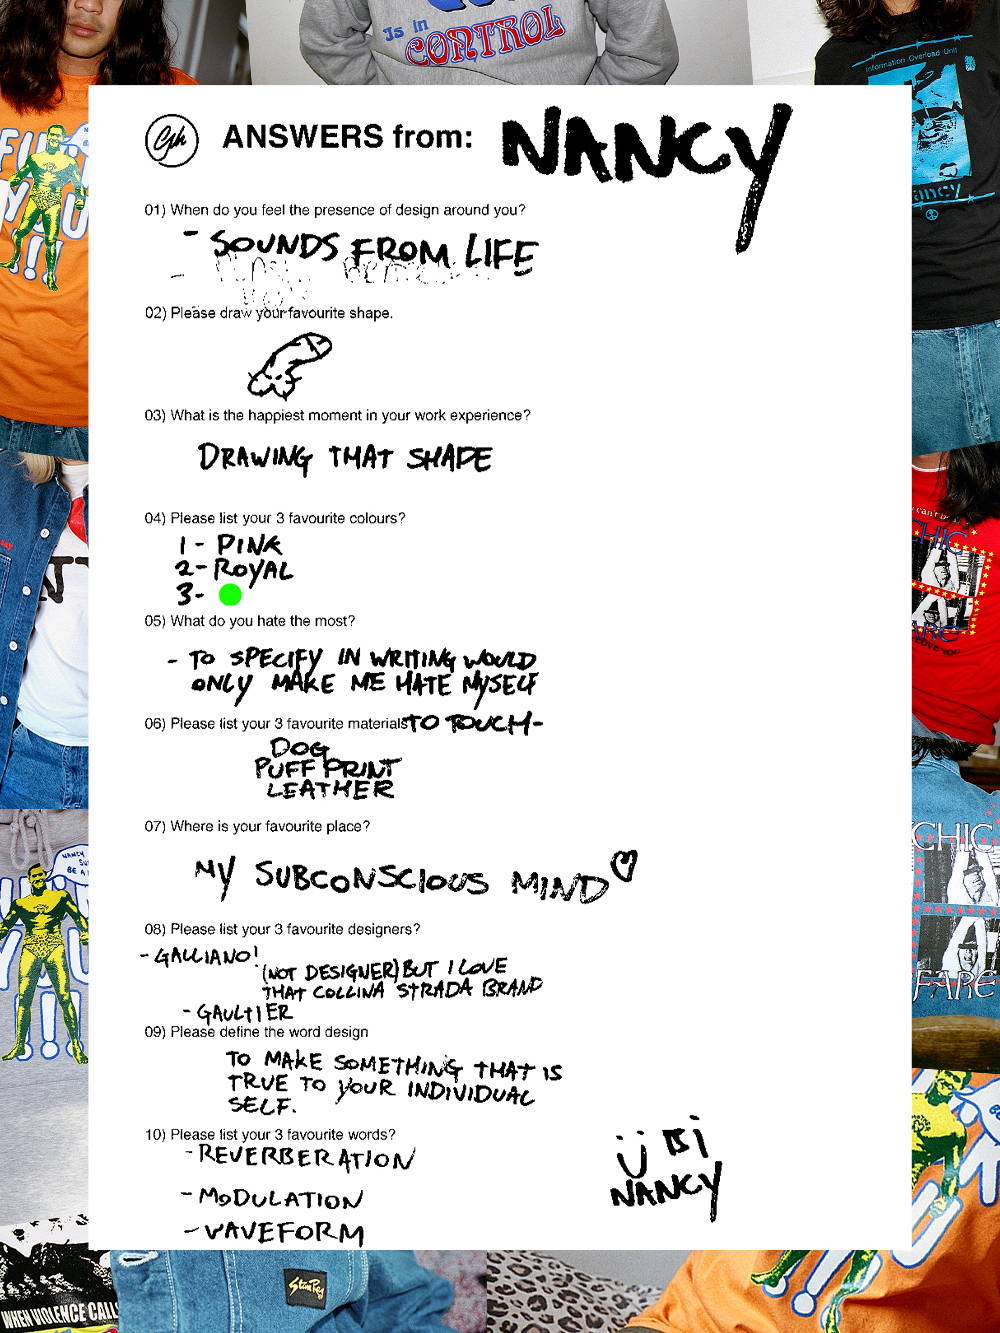 Is in
CONTROL
Information Overload Unit
ancy
Cgh
ANSWERS from: NANCY
01) When do you feel the presence of design around you?
- SOUNDS FROM LIFE
02) Please draw your favourite shape.
03) What is the happiest moment in your work experience?
DRAWING THAT SHAPE
04) Please list your 3 favourite colours?
1 - PINK
2 - ROYAL
3 -
05) What do you hate the most?
- TO SPECIFY IN WRITING WOULD
ONLY MAKE ME HATE MYSELF
06) Please list your 3 favourite materials TO TOUCH -
DOG
PUFF PRINT
LEATHER
07) Where is your favourite place?
MY SUBCONSCIOUS MIND
08) Please list your 3 favourite designers?
- GALLIANO!
(NOT DESIGNER) BUT I LOVE
THAT COLLINA STRADA BRAND
- GAULTIER
09) Please define the word design
TO MAKE SOMETHING THAT IS
TRUE TO YOUR INDIVIDUAL
SELF.
10) Please list your 3 favourite words?
- REVERBERATION
- MODULATION
- WAVEFORM
BI
NANCY
CHIC
FARE
CHIC
FARE
NANCY
BE A
WHEN VIOLENCE CALL
Stan Ray